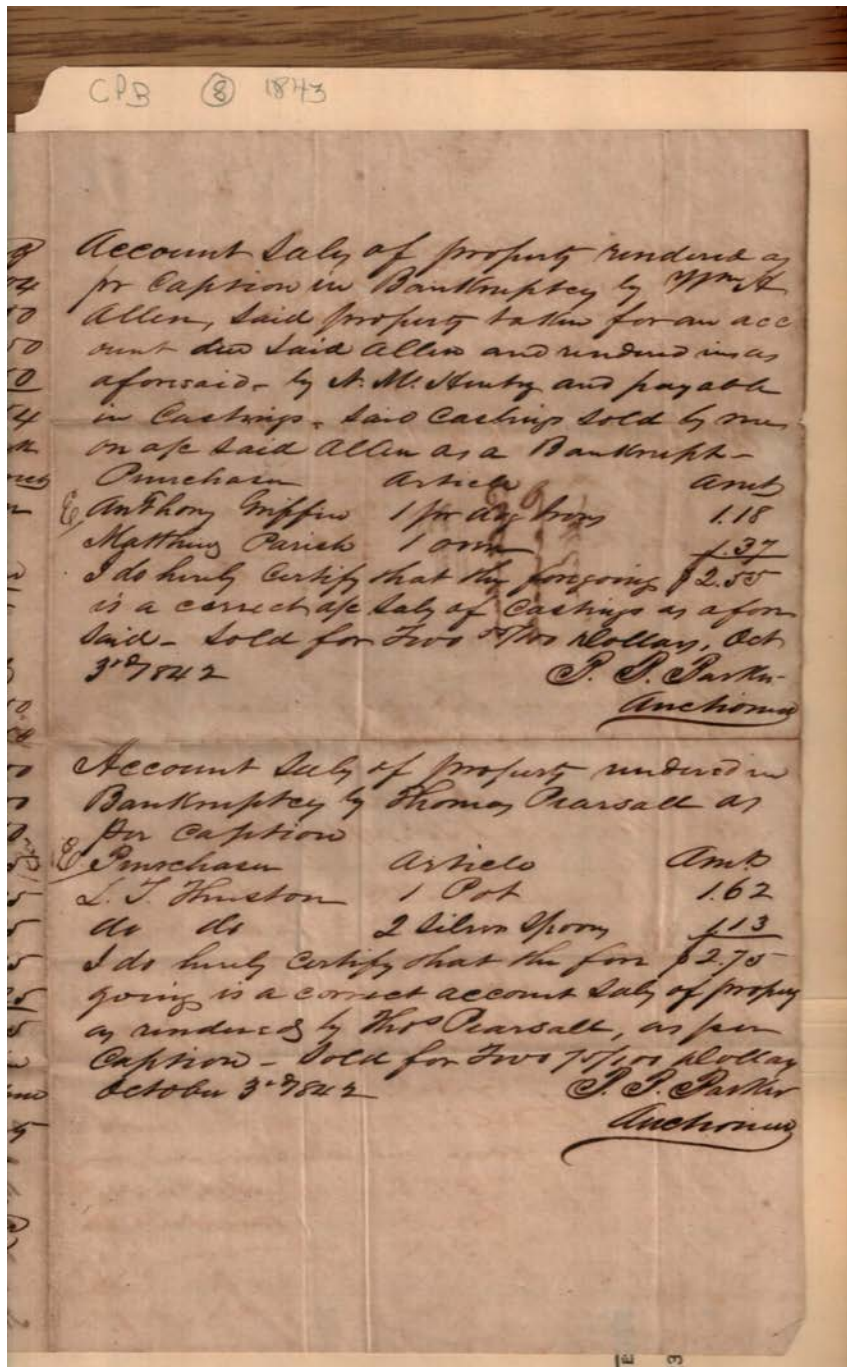 CPB 8 1843
Account Sales of property rendered as
pr Caption in Bankruptcy by Wm H
Allen, Said property taken for an acc
ount due Said Allen and rendered in as
aforesaid - by N. McHenry and payable
in Castings. Said Castings Sold by me
on a/c Said Allen as a Bankrupt -
Purchaser Article Amt
Anthony Griffin 1 pr dog Irons 1.18
Matthew Parish 1 oven 1.37
I do hereby Certify that the foregoing $2.55
is a correct a/c Sales of Castings as afore
Said - Sold for Two 55/100 Dollars, Oct
3rd 1842 P. P. Parker
Auctioneer
Account Sales of property rendered in
Bankruptcy by Thomas Pearsall as
per Caption
Purchaser Article Amt
L. T. Huston 1 Pot 1.62
do do 2 Silver Spoons 1.13
I do hereby Certify that the fore $2.75
going is a correct account Sales of property
as rendered by Thos Pearsall, as per
Caption - Sold for Two 75/100 Dollars
October 3rd 1842 P. P. Parker
Auctioneer